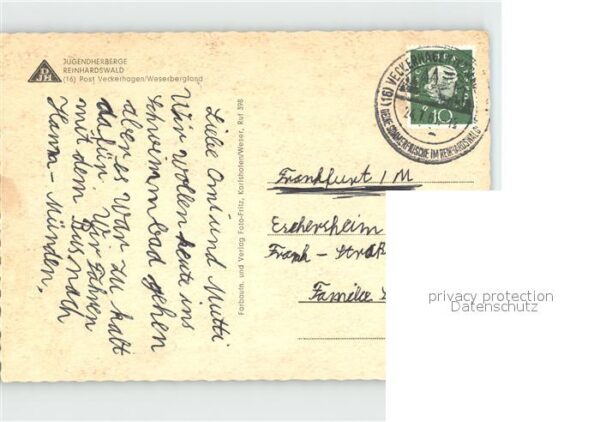 JUGENDHERBERGE
REINHARDSWALD
(16) Post Veckerhagen/Weserbergland
Liebe Omi und Mutti
Wir wollen heute ins
Schwimmbad gehen
aber es war zu kalt
dafür. Wir fahren
mit dem Bus nach
Hann-Münden.
Farbaufn. und Verlag Foto-Fritz, Karlshafen/Weser, Ruf 398
(16) VECKERHAGEN
SOMMERFRISCHE IM REINHARDSWALD
10
Frankfurt / M
Eschersheim
Frank-Straß
Familie
privacy protection
Datenschutz